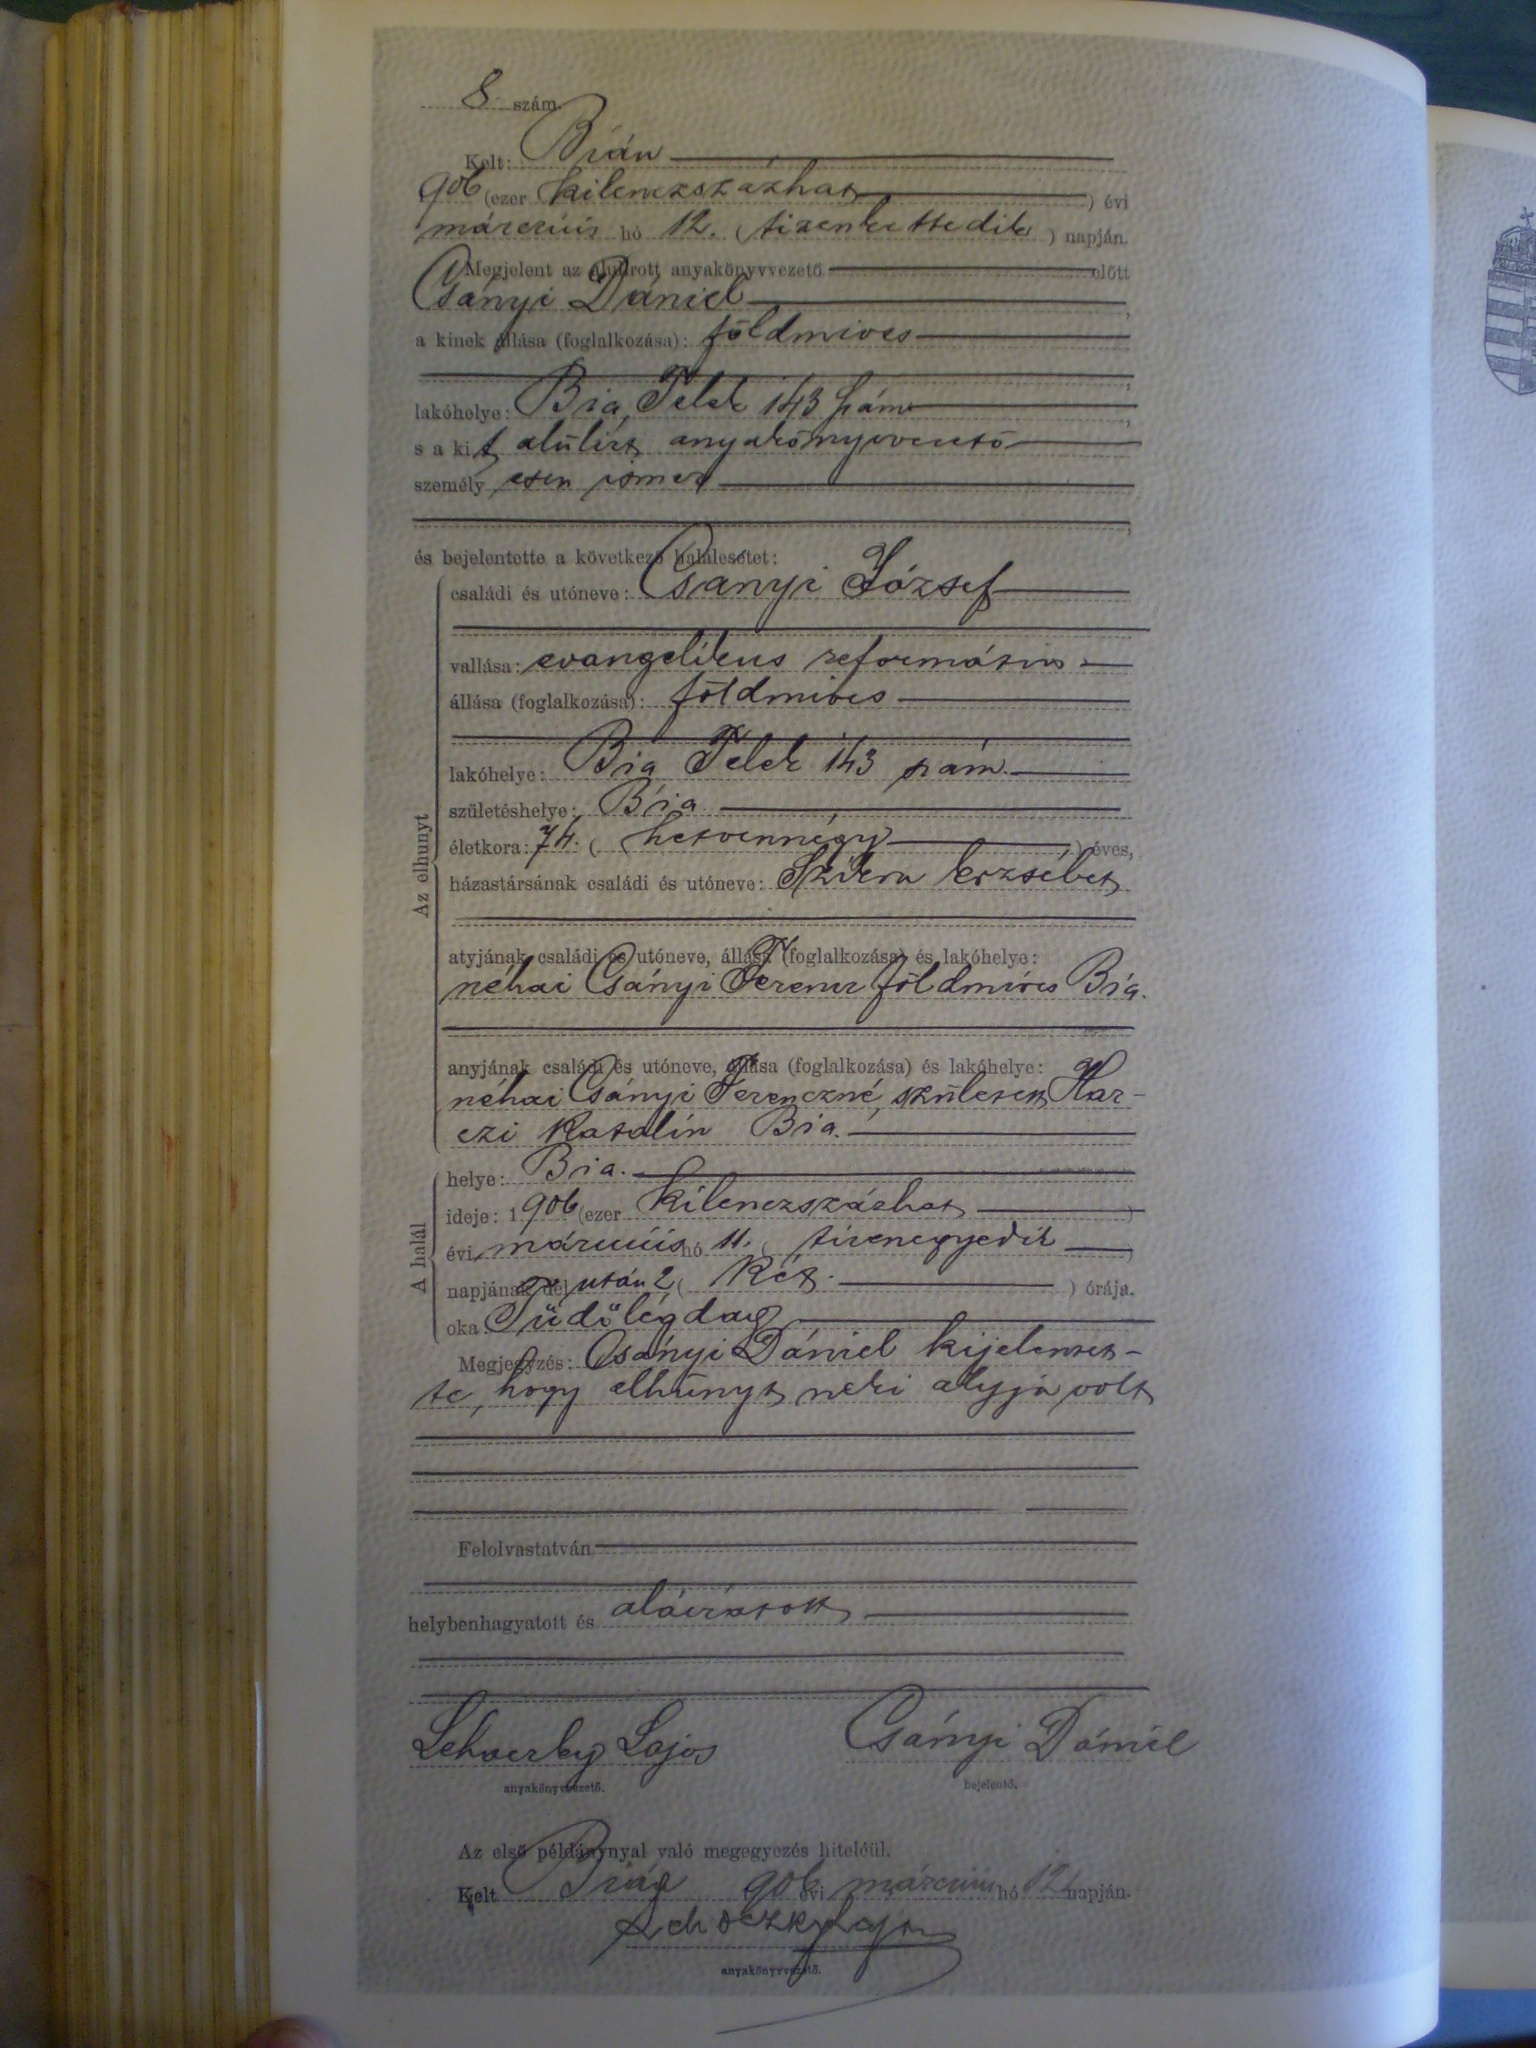 8 szám.
Kelt: Bián
1906 (ezer kilenczszázhat ) évi
márczius hó 12. (tizenkettedik ) napján.
Megjelent az alulirott anyakönyvvezető előtt
Csányi Dániel,
a kinek állása (foglalkozása): földmives
lakóhelye: Bia, Telek 143 szám,
s a kit alúlirt anyakönyvvezető
személyesen ismer
és bejelentette a következő halálesetet:
Az elhunyt
családi és utóneve: Csanyi József
vallása: evangelikus református
állása (foglalkozása): földmives
lakóhelye: Bia Telek 143 szám.
születéshelye: Bia
életkora: 74. ( hetvennégy ) éves,
házastársának családi és utóneve: Szikra Erzsébet
atyjának családi és utóneve, állása (foglalkozása) és lakóhelye:
néhai Csányi Ferencz földmíves Bia.
anyjának családi és utóneve, állása (foglalkozása) és lakóhelye: Har-
néhai Csányi Ferenczné, született
czi Katalin Bia.
A halál
helye: Bia.
ideje: 1906 (ezer kilenczszázhat )
évi márczius hó 11. ( tizenegyedik )
napjának dél után 2 ( két. ) órája.
oka: Tüdőlégdag
Megjegyzés: Csányi Dániel kijelentet-
te, hogy elhúnyt neki atyja volt
Felolvastatván
helybenhagyatott és aláiratott
Lajos Csányi Dániel
anyakönyvvezető. bejelentő.
Az első példánynyal való megegyezés hiteléül.
Kelt Bián 1906 évi márczius hó 12 napján.
Lajos
anyakönyvvezető.